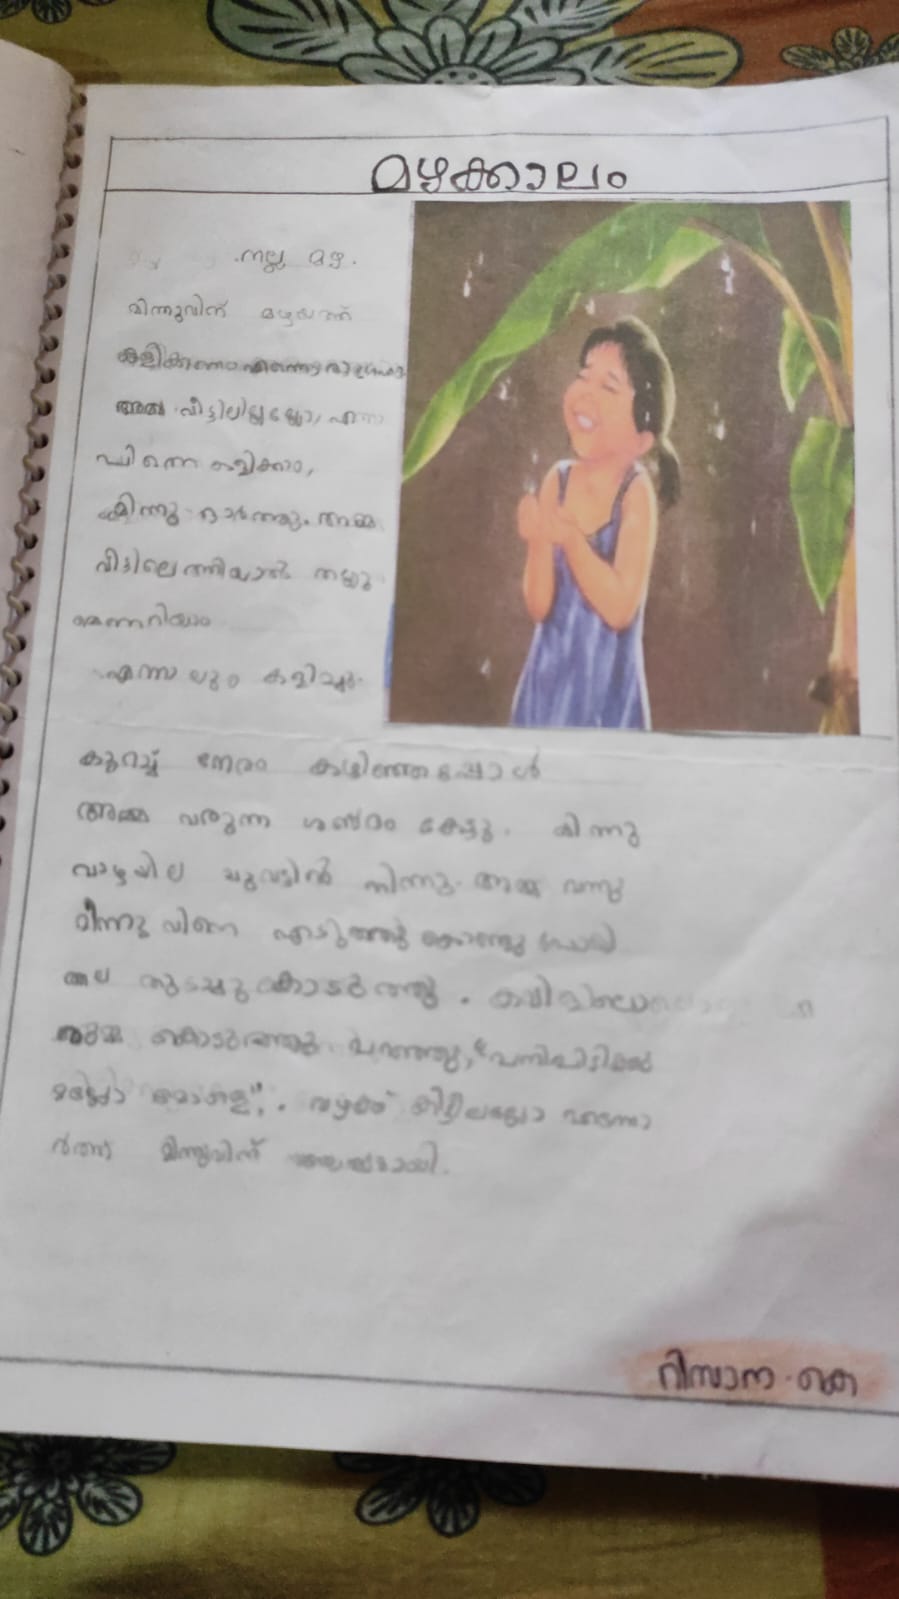 മഴക്കാലം
നല്ല മഴ.
മിന്നുവിന് മഴയത്ത്
കളിക്കണം
അമ്മ വീട്ടിലില്ലല്ലോ, എന്നാ
പിന്നെ കളിക്കാം,
മിന്നു ഓർത്തു. അമ്മ
വീട്ടിലെത്തിയാൽ തല്ലു
മെന്നറിയാം
എന്നാലും കളിച്ചു.
കുറച്ച് നേരം കഴിഞ്ഞപ്പോൾ
അമ്മ വരുന്ന ശബ്ദം കേട്ടു. മിന്നു
വാഴയില ചുവട്ടിൽ നിന്നു. അമ്മ വന്നു
മിന്നുവിനെ എടുത്തു കൊണ്ടു പോയി
തല തുടച്ചു കൊടുത്തു. കവിളിലൊരു
ഉമ്മ കൊടുത്തു പറഞ്ഞു, "പനിപിടിക്കു
മല്ലോ മോളെ". വഴക്ക് കിട്ടിയില്ലല്ലോ
മിന്നുവിന്
റിസാന. കെ